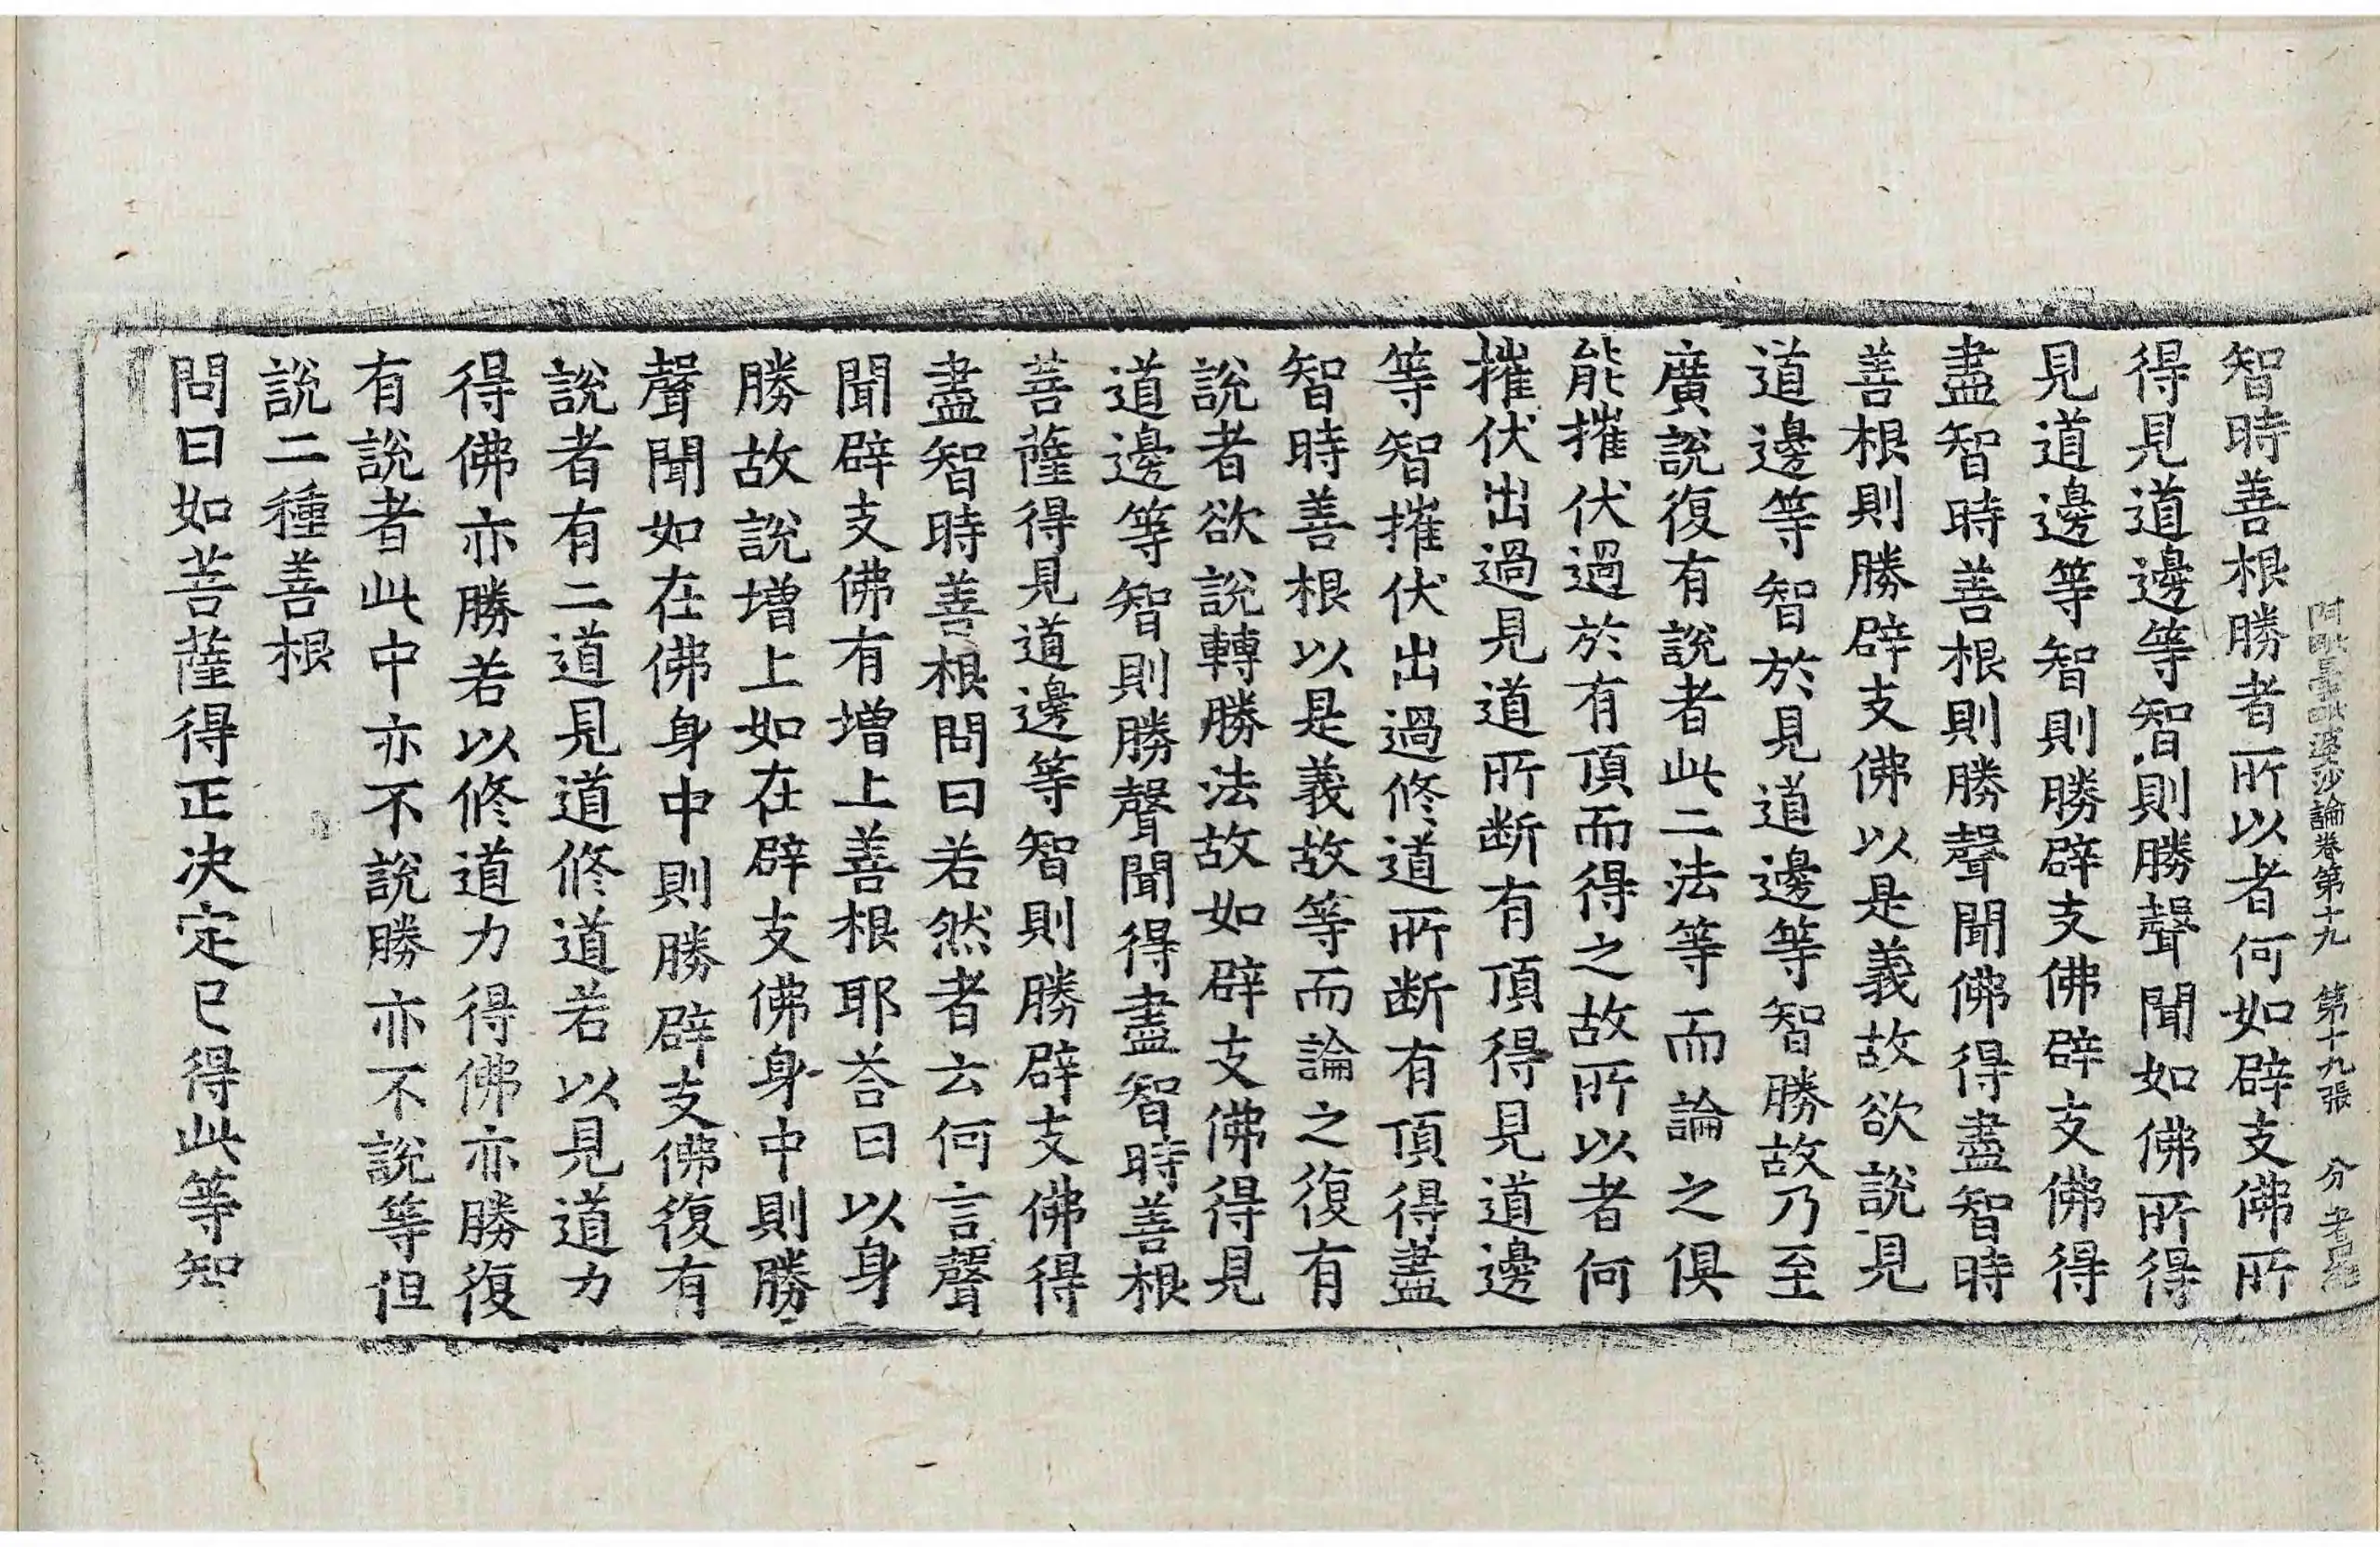 阿毗曇毗婆沙論卷第十九 第十九張 分
智時善根勝者所以者何如辟支佛所
得見道邊等智則勝聲聞如佛所得
見道邊等智則勝辟支佛辟支佛得
盡智時善根則勝聲聞佛得盡智時
善根則勝辟支佛以是義故欲說見
道邊等智於見道邊等智勝故乃至
廣說復有說者此二法等而論之俱
能摧伏過於有頂而得之故所以者何
摧伏出過見道所断有頂得見道邊
等智摧伏出過修道所断有頂得盡
智時善根以是義故等而論之復有
說者欲說轉勝法故如辟支佛得見
道邊等智則勝聲聞得盡智時善根
菩薩得見道邊等智則勝辟支佛得
盡智時善根問曰若然者云何言聲
聞辟支佛有增上善根耶荅曰以身
勝故說增上如在辟支佛身中則勝
聲聞如在佛身中則勝辟支佛復有
說者有二道見道修道若以見道力
得佛亦勝若以修道力得佛亦勝復
有說者此中亦不說勝亦不說等但
說二種善根
問曰如菩薩得正决定已得此等知